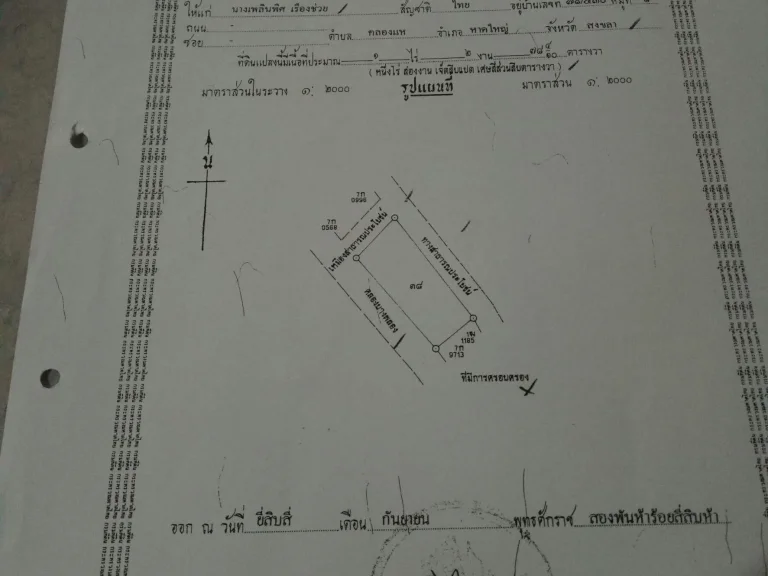 ให้แก่ นางเพลินพิศ เรืองช่วย สัญชาติ ไทย อยู่บ้านเลขที่ หมู่ที่
ถนน - ตำบล คลองแห อำเภอ หาดใหญ่ จังหวัด สงขลา
ซอย -
ที่ดินแปลงนี้มีเนื้อที่ประมาณ ๑ ไร่ ๒ งาน ๗๘ ๔/๑๐ ตารางวา
( หนึ่งไร่ สองงาน เจ็ดสิบแปด เศษสี่ส่วนสิบตารางวา )
มาตราส่วนในระวาง ๑: ๒๐๐๐ รูปแผนที่ มาตราส่วน ๑: ๒๐๐๐
น
7ก
0996
7ก
0568
เหมืองสาธารณประโยชน์
ทางสาธารณประโยชน์
๓๘
1185
7ก
9713
ที่มีการครอบครอง
ออก ณ วันที่ ยี่สิบสี่ เดือน กันยายน พุทธศักราช สองพันห้าร้อยสี่สิบห้า